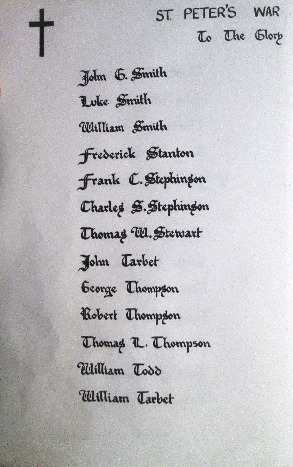 ST. PETER'S WAR
To The Glory
John G. Smith
Luke Smith
William Smith
Frederick Stanton
Frank C. Stephinson
Charles S. Stephinson
Thomas W. Stewart
John Tarbet
George Thompson
Robert Thompson
Thomas L. Thompson
William Todd
William Tarbet